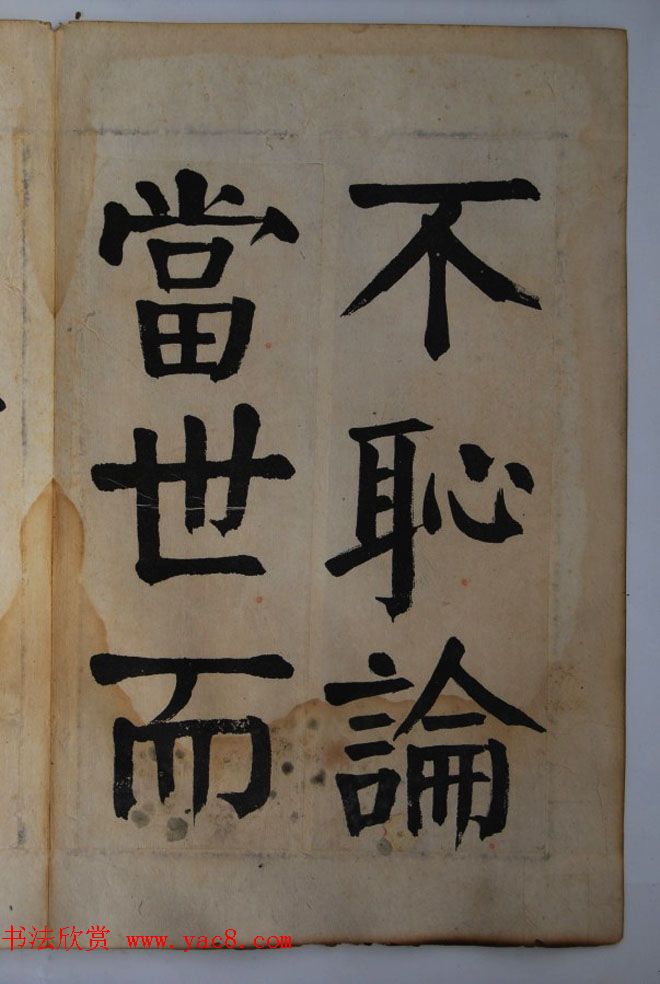 不恥論
當世而
书法欣赏 www.yac8.com